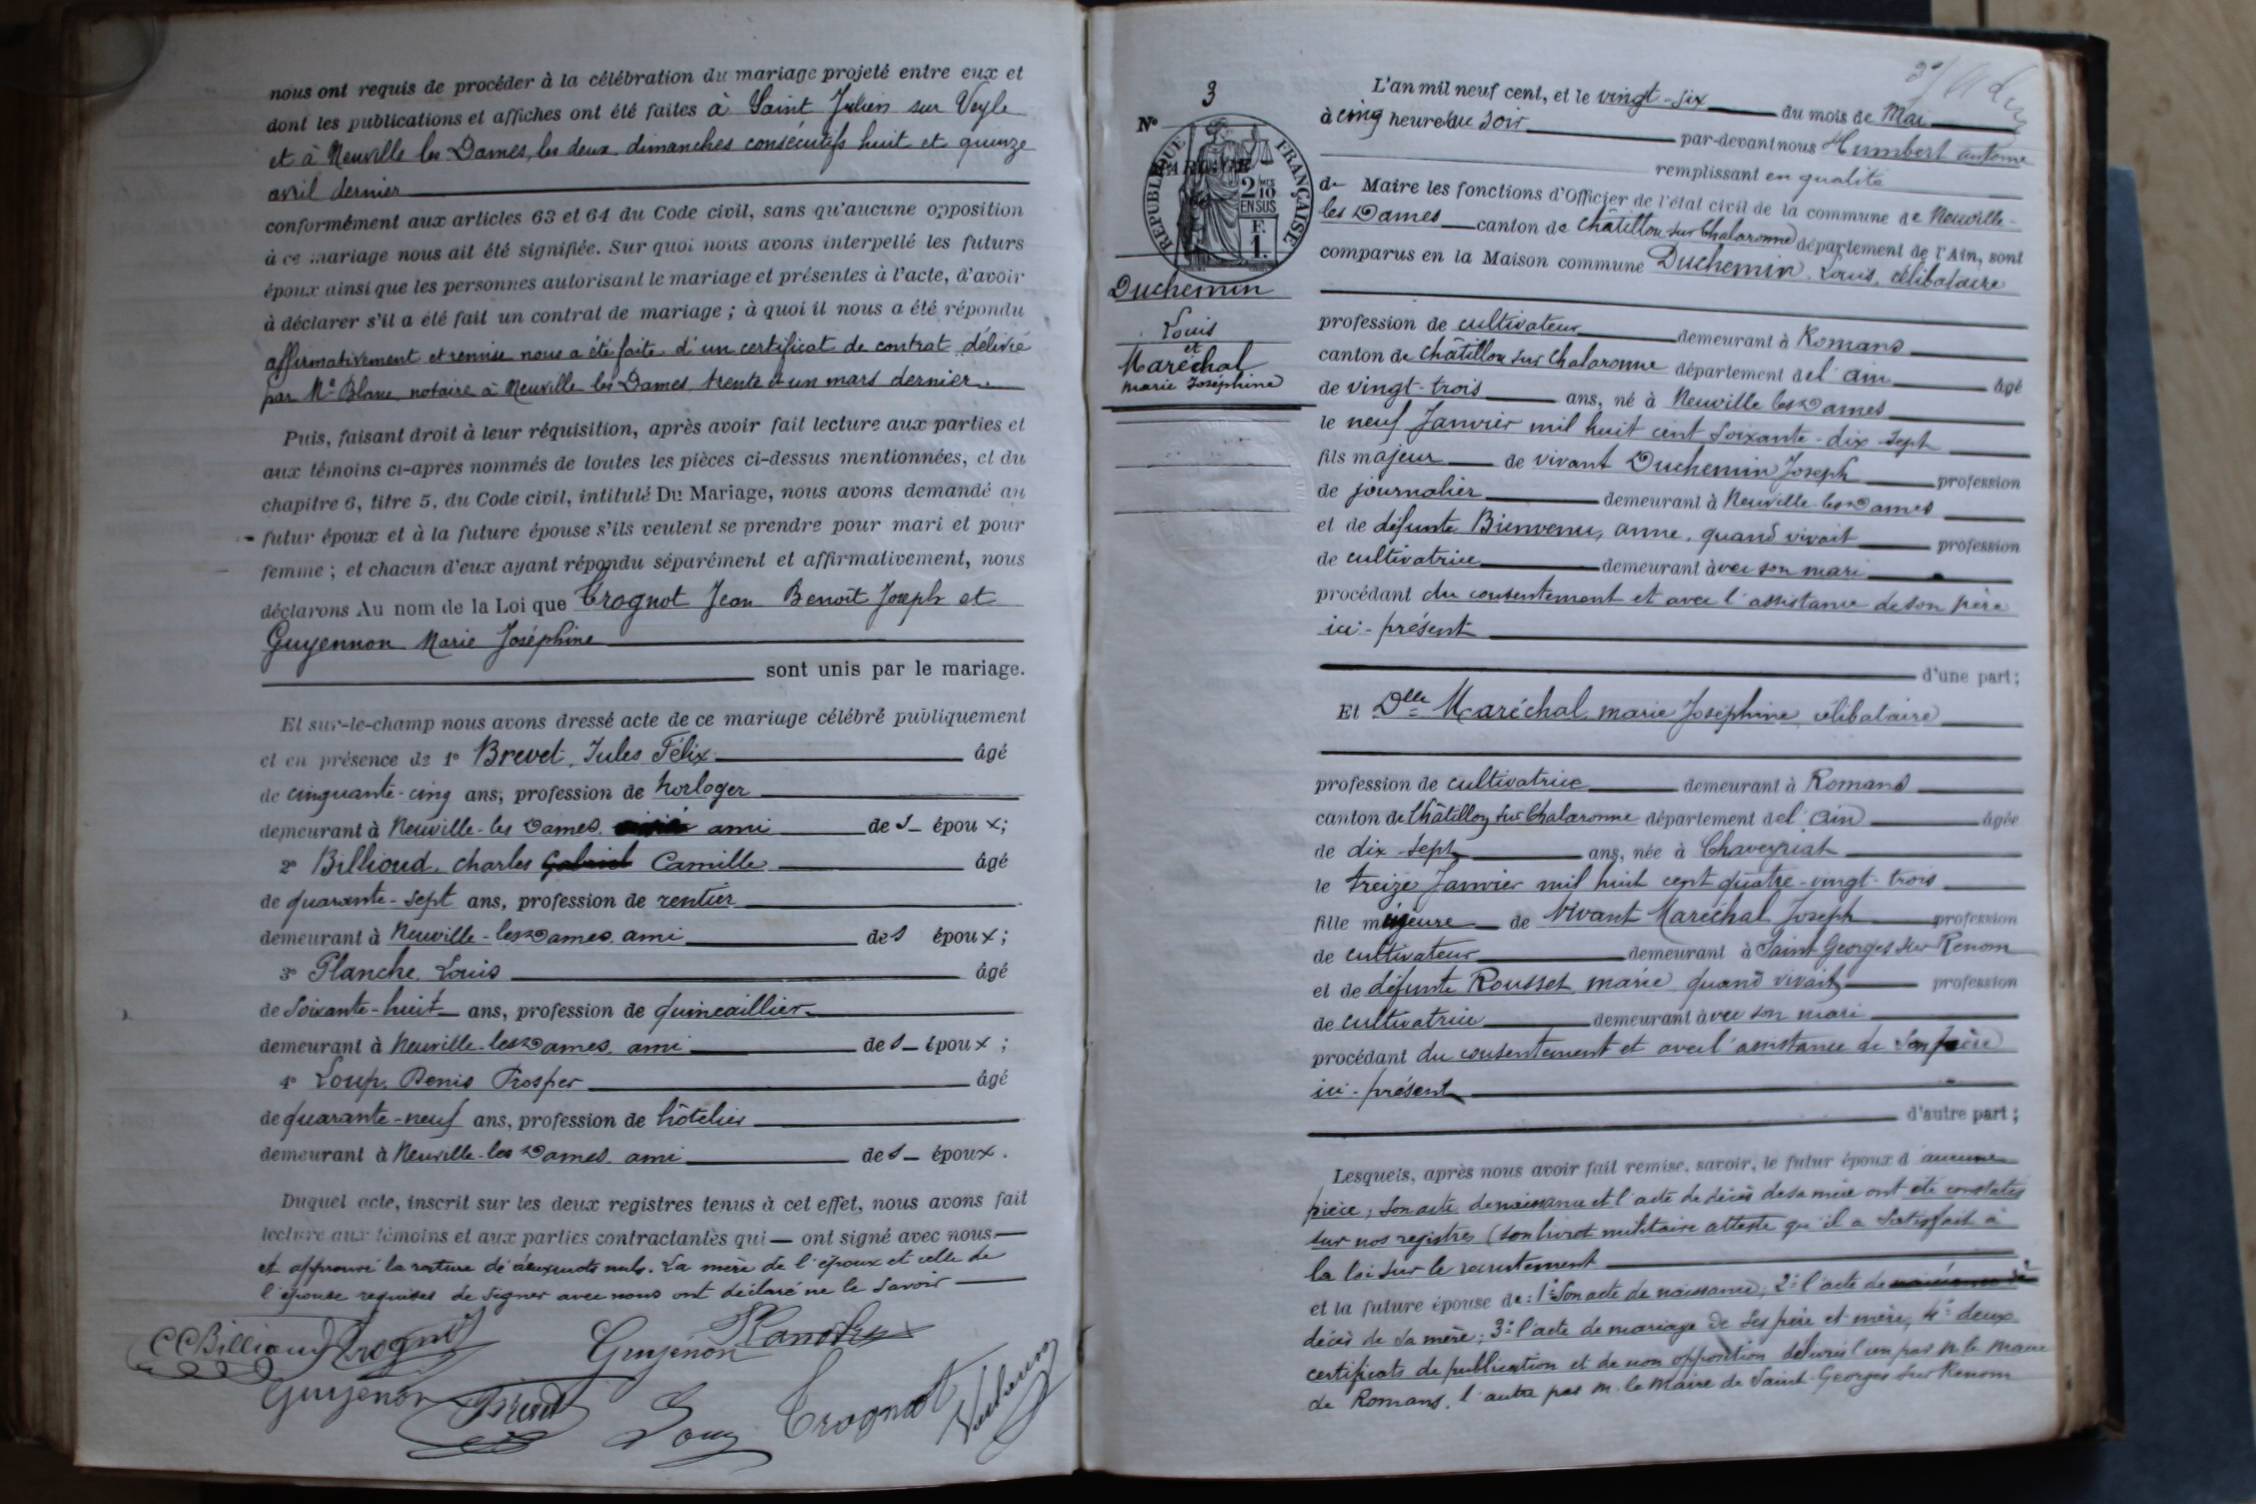 nous ont requis de procéder à la célébration du mariage projeté entre eux et
dont les publications et affiches ont été faites à Saint Julien sur Veyle
et à Neuville les Dames, les deux dimanches consécutifs huit et quinze
avril dernier
conformément aux articles 63 et 64 du Code civil, sans qu'aucune opposition
à ce mariage nous ait été signifiée. Sur quoi nous avons interpellé les futurs
époux ainsi que les personnes autorisant le mariage et présentes à l'acte, d'avoir
à déclarer s'il a été fait un contrat de mariage ; à quoi il nous a été répondu
affirmativement et remise nous a été faite d'un certificat de contrat délivré
par Me Blanc notaire à Neuville les Dames, trente et un mars dernier.
Puis, faisant droit à leur réquisition, après avoir fait lecture aux parties et
aux témoins ci-après nommés de toutes les pièces ci-dessus mentionnées, et du
chapitre 6, titre 5, du Code civil, intitulé Du Mariage, nous avons demandé au
futur époux et à la future épouse s'ils veulent se prendre pour mari et pour
femme ; et chacun d'eux ayant répondu séparément et affirmativement, nous
déclarons Au nom de la Loi que Trognot Jean Benoît Joseph et
Guyennon Marie Joséphine
sont unis par le mariage.
Et sur-le-champ nous avons dressé acte de ce mariage célébré publiquement
et en présence de 1° Brevet, Jules Félix âgé
de cinquante-cinq ans, profession de horloger
demeurant à Neuville-les Dames, ami des époux;
2° Billioud, Charles Gabriel Camille âgé
de quarante-sept ans, profession de rentier
demeurant à Neuville-les Dames, ami des époux;
3° Planche, Louis âgé
de soixante-huit ans, profession de quincaillier
demeurant à Neuville-les Dames, ami des époux ;
4° Loup, Denis Prosper âgé
de quarante-neuf ans, profession de hôtelier
demeurant à Neuville-les Dames, ami des époux.
Duquel acte, inscrit sur les deux registres tenus à cet effet, nous avons fait
lecture aux témoins et aux parties contractantes qui ont signé avec nous
et approuvé la rature de deux mots nuls. La mère de l'époux et celle de
l'épouse requises de signer avec nous ont déclaré ne le savoir
CCBillioud Trognot Guyénon Planche
Guyénon Brevet Loup Trognot
3
N°
RÉPUBLIQUE FRANÇAISE
2/10
EN SUS
F.
1.
Duchemin
Louis
et
Maréchal
Marie Joséphine
L'an mil neuf cent, et le vingt-six du mois de Mai
à cinq heures du soir par-devant nous Humbert Antoine
remplissant en qualité
de Maire les fonctions d'Officier de l'état civil de la commune de Neuville-
les Dames canton de Châtillon sur Chalaronne département de l'Ain, sont
comparus en la Maison commune Duchemin, Louis, célibataire
profession de cultivateur demeurant à Romans
canton de Châtillon sur Chalaronne département de l'Ain âgé
de vingt-trois ans, né à Neuville les Dames
le neuf Janvier mil huit cent soixante-dix-sept
fils majeur de vivant Duchemin Joseph profession
de journalier demeurant à Neuville-les Dames
et de défunte Bienvenu, anne, quand vivait profession
de cultivatrice demeurant avec son mari
procédant du consentement et avec l'assistance de son père
ici-présent
d'une part;
Et Dlle Maréchal, marie Joséphine, célibataire
profession de cultivatrice demeurant à Romans
canton de Châtillon sur Chalaronne département de l'Ain âgée
de dix-sept ans, née à Chaveyriat
le treize Janvier mil huit cent quatre-vingt-trois
fille mineure de vivant Maréchal Joseph profession
de cultivateur demeurant à Saint Georges sur Renom
et de défunte Rousset, marie, quand vivait profession
de cultivatrice demeurant avec son mari
procédant du consentement et avec l'assistance de son père
ici-présent
d'autre part ;
Lesquels, après nous avoir fait remise, savoir, le futur époux d aucune
pièce, son acte de naissance et l'acte de décès de sa mère ont été constatés
sur nos registres (son livret militaire atteste qu'il a satisfait à
la loi sur le recrutement
et la future épouse de: 1° Son acte de naissance, 2° l'acte de
décès de sa mère; 3° l'acte de mariage de ses père et mère, 4° deux
certificats de publication et de non opposition délivrés l'un par M. le Maire
de Romans, l'autre par M. le Maire de Saint-Georges sur Renom